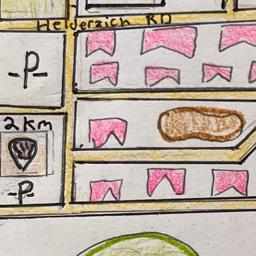 Helderzich RD
-P-
2 km
-P-